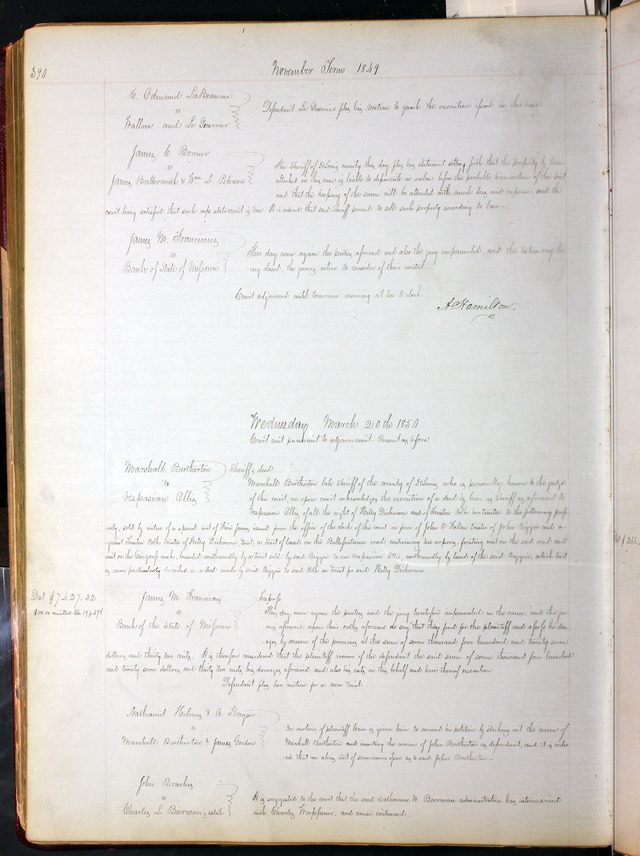 390
November Term 1849
C. Edmund LaBeaume
vs
Wallace and Le Guerrier
Defendant Le Guerrier files his motion to quash the execution issued in this case
James C. Bonner
vs
James Butterworth & Wm L.
The Sheriff of St Louis county this day files his statement setting forth that the property by him
attached in this case is liable to deteriorate in value before the probable termination of this suit
and that the keeping of the same will be attended with much loss and expense, and the
court being satisfied that such statement is true It is ordered that said Sheriff proceed to sell such property according to law
James M. Franciscus
vs
Bank of State of Missouri
This day come again the parties aforesaid and also the jury empanneled, and the testimony be
ing closed, the jurors retire to consider of their verdict.
Court adjourned until tomorrow morning at ten o'clock
A Hamilton.
Wednesday March 20th 1850
Court met pursuant to adjournment. Present as before
Marshall Brotherton
to
Vespasian Ellis
Sheriff's deed
Marshall Brotherton late Sheriff of the county of St Louis who is personally known to the judge
of this court, in open court acknowledges the execution of a deed by him as Sheriff as aforesaid to
Vespasian Ellis, of all the right of Hetty Dickerson and of her trustee to the following prop
erty, sold by virtue of a special writ of fieri facias issued from the office of the clerk of this court in favor of John O Fallon trustee of John Biggin and a
gainst trustee of Hetty Dickerson a tract of land on the Bellefontaine road containing ten arpens, fronting on the said road and
on the back, bounded by a tract sold by said Biggin to Vespasian Ellis, by land of the said Biggin, which tract
is more particularly described in a deed made by said Biggin to said in trust for said Hetty Dickerson.
Dbt $7,427.32
James M. Franciscus
vs
Bank of the State of Missouri
This day come again the parties and the jury heretofore empanneled in this cause, and the ju
rors aforesaid upon their oaths aforesaid do say that they find for the plaintiff and assess his dam
ages by reason of the premises at the sum of seven thousand four hundred and twenty seven
dollars and thirty two cents. It is therefore considered that the plaintiff recover of the defendant the said sum of seven thousand four hundred
and twenty seven dollars and thirty two cents, his damages aforesaid and also his costs in this behalf and have thereof execution
Defendant files his motion for a new trial
Nathaniel Holmes & A
vs
Marshall Brotherton & James Gordon
On motion of plaintiff leave is given him to amend his petition by striking out the name of
Marshall Brotherton and inserting the name of John Brotherton as defendant, and it is order
ed that an alias writ of summons issue as to said John Brotherton
John
vs
Charles L. estate
It is suggested to the court that the said Catharine W. administratrix has intermarried
with Charles, and cause continued.